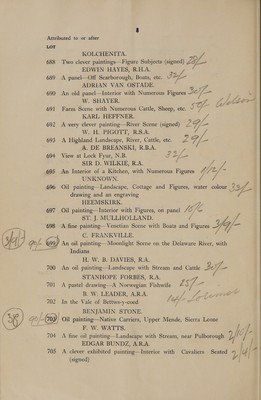 8
Attributed to or after
LOT
KOLCHENITA.
688 Two clever paintings—Figure Subjects (signed) 28/-
EDWIN HAYES, R.H.A.
689 A panel—Off Scarborough, Boats, etc. 32/-
ADRIAN VAN OSTADE.
690 An old panel—Interior with Numerous Figures 30/-
W. SHAYER.
691 Farm Scene with Numerous Cattle, Sheep, etc.
KARL HEFFNER.
692 A very clever painting—River Scene (signed) 29/-
W. H. PIGOTT, R.S.A.
693 A Highland Landscape, River, Cattle, etc. 29/-
A. DE BREANSKI, R.B.A.
694 View at Lock Fyur, N.B. 32/-
SIR D. WILKIE, R.A.
695 An Interior of a Kitchen, with Numerous Figures
UNKNOWN.
696 Oil painting—Landscape, Cottage and Figures, water colour 33/-
drawing and an engraving
HEEMSKIRK.
697 Oil painting—Interior with Figures, on panel
ST. J. MULLHOLLAND.
698 A fine painting—Venetian Scene with Boats and Figures 3/9/-
C. FRANKVILLE.
699 An oil painting—Moonlight Scene on the Delaware River, with
Indians
H. W. B. DAVIES, R.A.
700 An oil painting—Landscape with Stream and Cattle 30/-
STANHOPE FORBES, R.A.
701 A pastel drawing—A Norwegian Fishwife 25/-
B. W. LEADER, A.R.A.
702 In the Vale of Bettws-y-coed
BENJAMIN STONE.
703 Oil painting—Native Carriers, Upper Mende, Sierra Leone
F. W. WATTS.
704 A fine oil painting—Landscape with Stream, near Pulborough
EDGAR BUNDZ, A.R.A.
705 A clever exhibited painting—Interior with Cavaliers Seated
(signed)